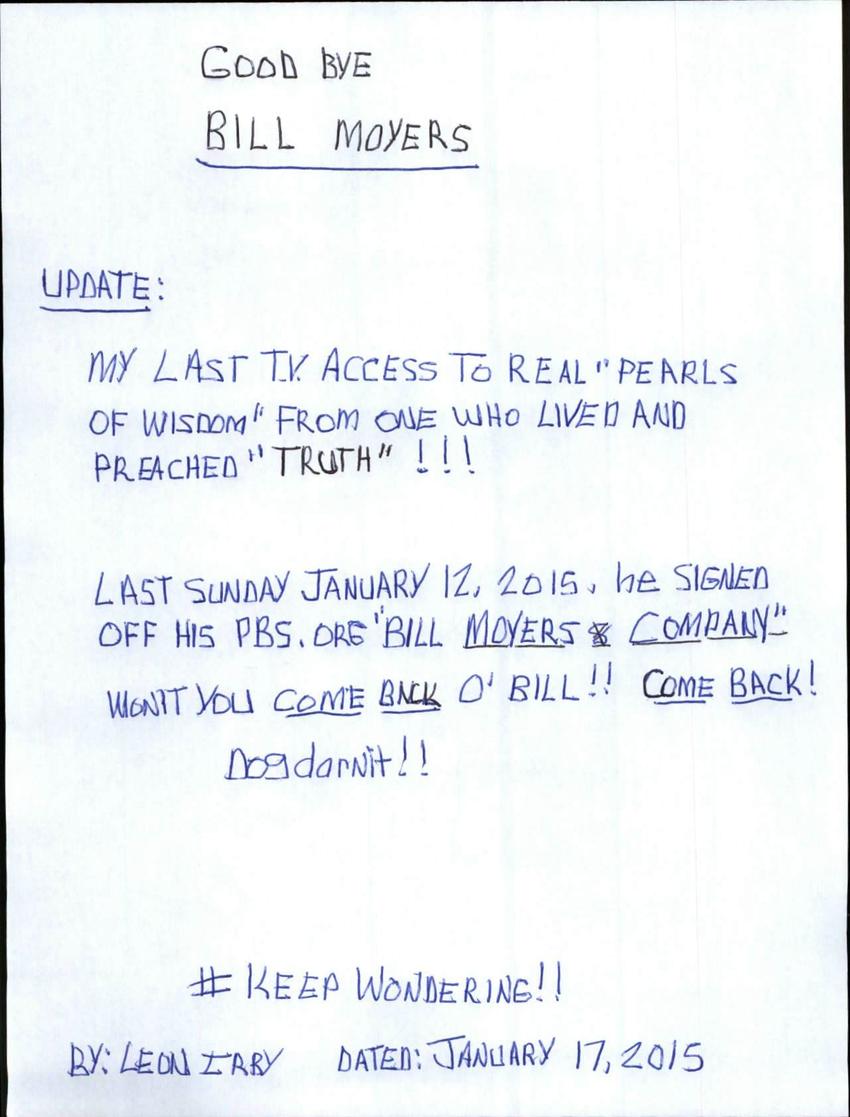 GOOD BYE
BILL MOYERS
UPDATE:
MY LAST T.V. ACCESS TO REAL "PEARLS
OF WISDOM" FROM ONE WHO LIVED AND
PREACHED "TRUTH" !!!
LAST SUNDAY JANUARY 12, 2015, he SIGNED
OFF HIS PBS.ORG "BILL MOYERS & COMPANY"
WON'T YOU COME BACK O' BILL!! COME BACK!
Dogdarnit!!
# KEEP WONDERING!!
BY: LEON IRBY DATED: JANUARY 17, 2015